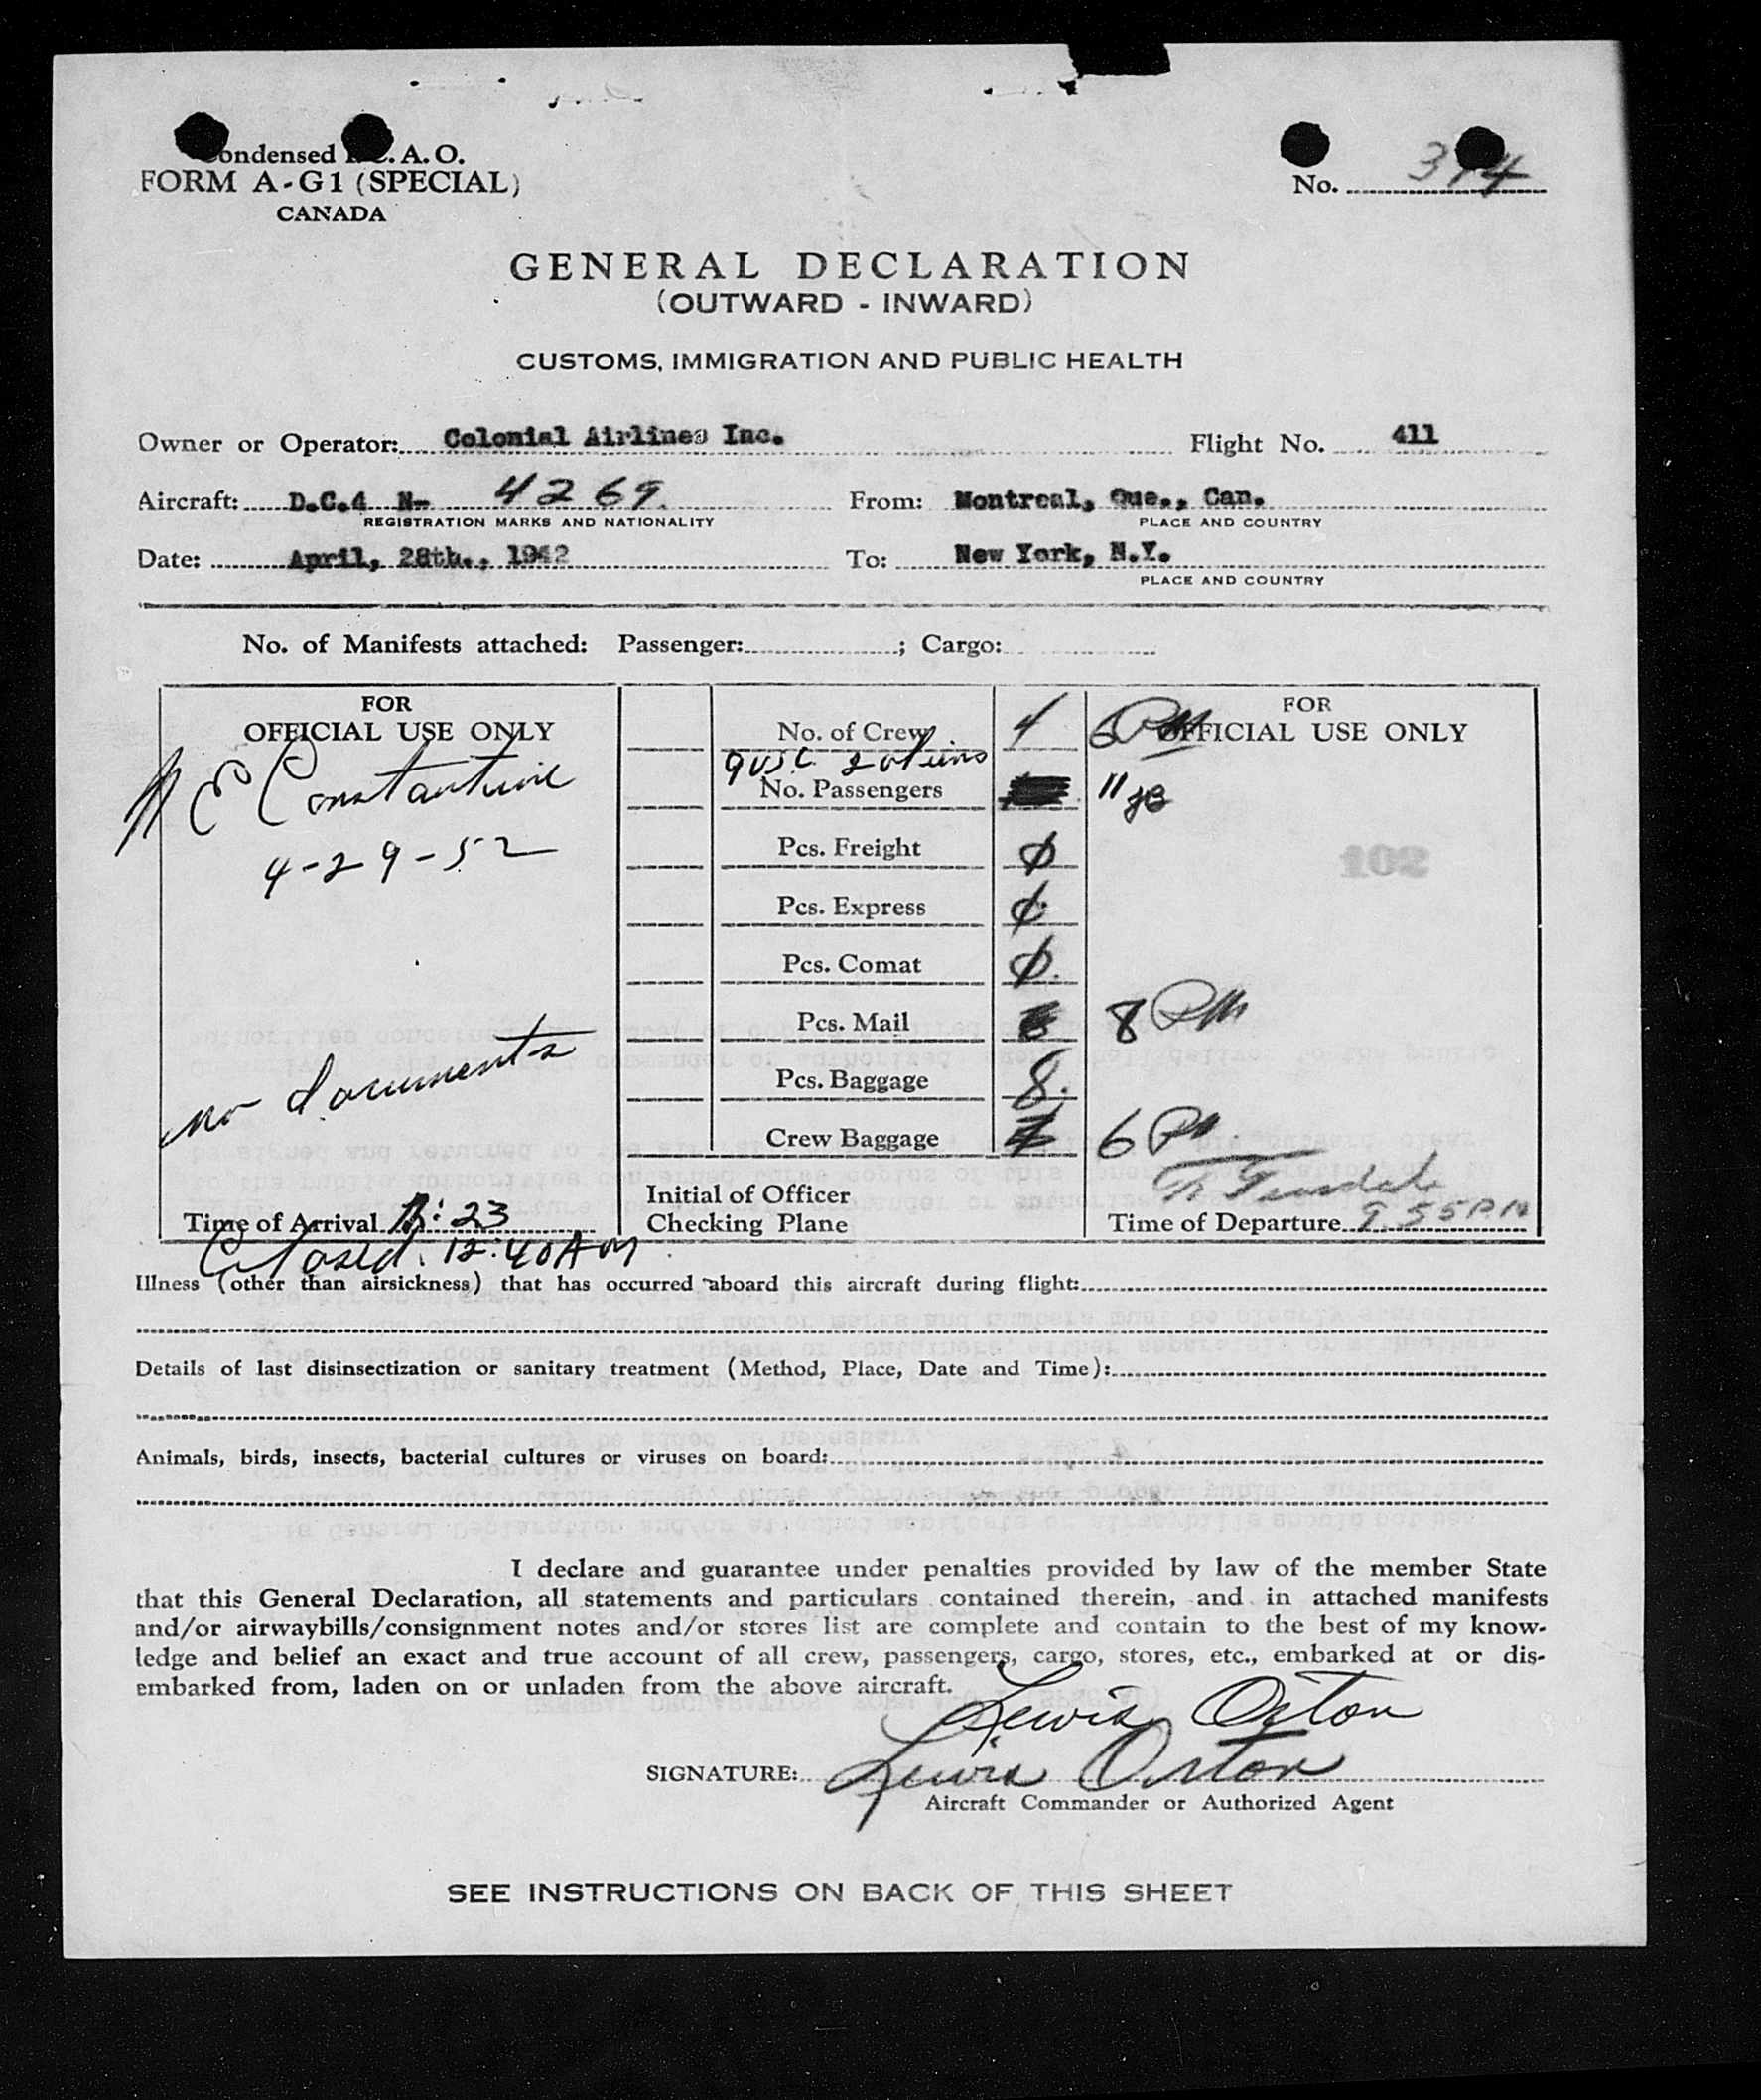 Condensed I.C.A.O.
FORM A-G1 (SPECIAL)
CANADA
No. 314
GENERAL DECLARATION
(OUTWARD - INWARD)
CUSTOMS, IMMIGRATION AND PUBLIC HEALTH
Owner or Operator: Colonial Airlines Inc. Flight No. 411
Aircraft: D.C.4 N- 4269. From: Montreal, Que., Can.
REGISTRATION MARKS AND NATIONALITY PLACE AND COUNTRY
Date: April, 28th., 1942 To: New York, N.Y.
PLACE AND COUNTRY
No. of Manifests attached: Passenger: ; Cargo:
FOR
OFFICIAL USE ONLY
E Constantine
4-29-52
no documents
Time of Arrival : 23
Closed. 12:40 AM
No. of Crew 4
9 USC 2 aliens
No. Passengers
Pcs. Freight 0
Pcs. Express 0
Pcs. Comat 0.
Pcs. Mail
Pcs. Baggage 8.
Crew Baggage
Initial of Officer
Checking Plane
FOR
OFFICIAL USE ONLY
6
11
102
8
6
Time of Departure 9.55 PM
Illness (other than airsickness) that has occurred aboard this aircraft during flight:
Details of last disinsectization or sanitary treatment (Method, Place, Date and Time):
Animals, birds, insects, bacterial cultures or viruses on board:
I declare and guarantee under penalties provided by law of the member State
that this General Declaration, all statements and particulars contained therein, and in attached manifests
and/or airwaybills/consignment notes and/or stores list are complete and contain to the best of my know-
ledge and belief an exact and true account of all crew, passengers, cargo, stores, etc., embarked at or dis-
embarked from, laden on or unladen from the above aircraft.
Lewis Orton
SIGNATURE: Lewis Orton
Aircraft Commander or Authorized Agent
SEE INSTRUCTIONS ON BACK OF THIS SHEET